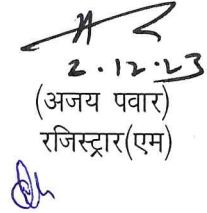 2.12.23
(अजय पवार)
रजिस्ट्रार(एम)